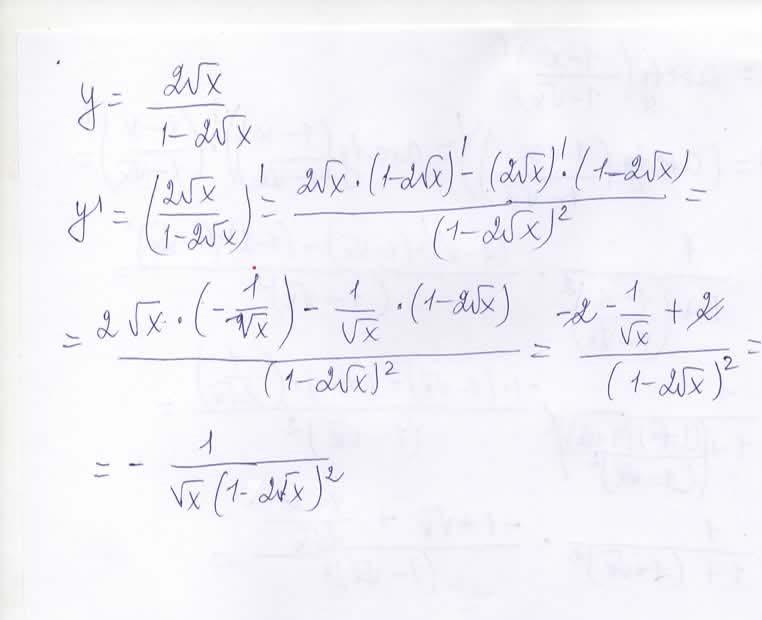 y = 2√x / (1-2√x)
y' = (2√x / (1-2√x))' = (2√x · (1-2√x)' - (2√x)' · (1-2√x)) / (1-2√x)² =
= (2√x · (-1/√x) - 1/√x · (1-2√x)) / (1-2√x)² = (-2 - 1/√x + 2) / (1-2√x)² =
= - 1 / (√x (1-2√x)²)